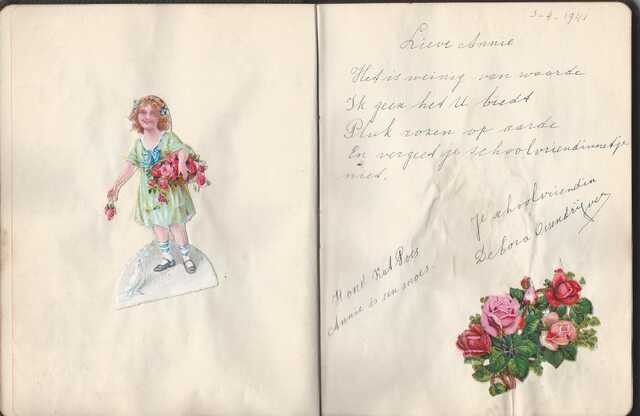 3-4-1941
Lieve Annie
Het is weinig van waarde
Ik geen het U biedt
Pluk rozen op aarde
En vergeet je schoolvriendinnetje
niet.
Je schoolvriendin
Debora
Hond Kat Poes
Annie is een snoes.